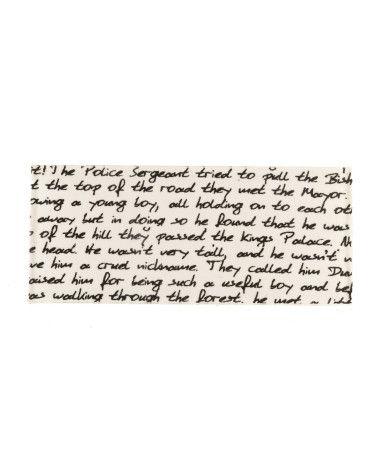 t! The Police Sergeant tried to pull the Bish
t the top of the road they met the Mayor.
owing a young boy, all holding on to each oth
away but in doing so he found that he was
p of the hill they passed the Kings Palace. Ne
e head. He wasn't very tall, and he wasn't v
ve him a cruel nickname. They called him Dum
aised him for being such a useful boy and bef
as walking through the forest, he met a litt